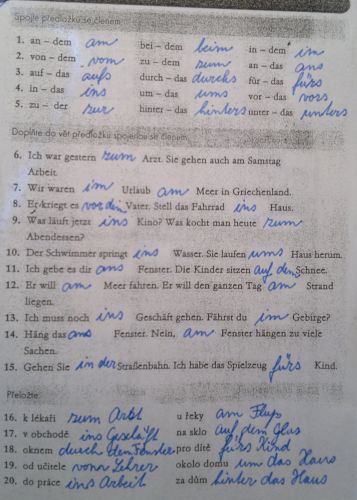 Spojte předložku se členem
1. an – dem am bei – dem beim in – dem im
2. von – dem vom zu – dem zum an – das ans
3. auf – das aufs durch – das durchs für – das fürs
4. in – das ins um – das ums vor – das vors
5. zu – der zur hinter – das hinters unter – das unters
Doplňte do vět předložku spojenou se členem
6. Ich war gestern zum Arzt. Sie gehen auch am Samstag
Arbeit.
7. Wir waren im Urlaub am Meer in Griechenland.
8. Er kriegt es von den Vater. Stell das Fahrrad ins Haus.
9. Was läuft jetzt ins Kino? Was kocht man heute zum
Abendessen?
10. Der Schwimmer springt ins Wasser. Sie laufen ums Haus herum.
11. Ich gebe es dir ans Fenster. Die Kinder sitzen auf den Schnee.
12. Er will am Meer fahren. Er will den ganzen Tag am Strand
liegen.
13. Ich muss noch ins Geschäft gehen. Fährst du im Gebirge?
14. Häng das ans Fenster. Nein, am Fenster hängen zu viele
Sachen.
15. Gehen Sie in der Straßenbahn. Ich habe das Spielzeug fürs Kind.
Přeložte
16. k lékaři zum Arbt u řeky am Fluß
17. v obchodě ins Geschäft na sklo auf dem Glas
18. oknem durch dem Fenster pro dítě fürs Kind
19. od učitele vom Lehrer okolo domu um das Haus
20. do práce ins Arbeit za dům hinter das Haus